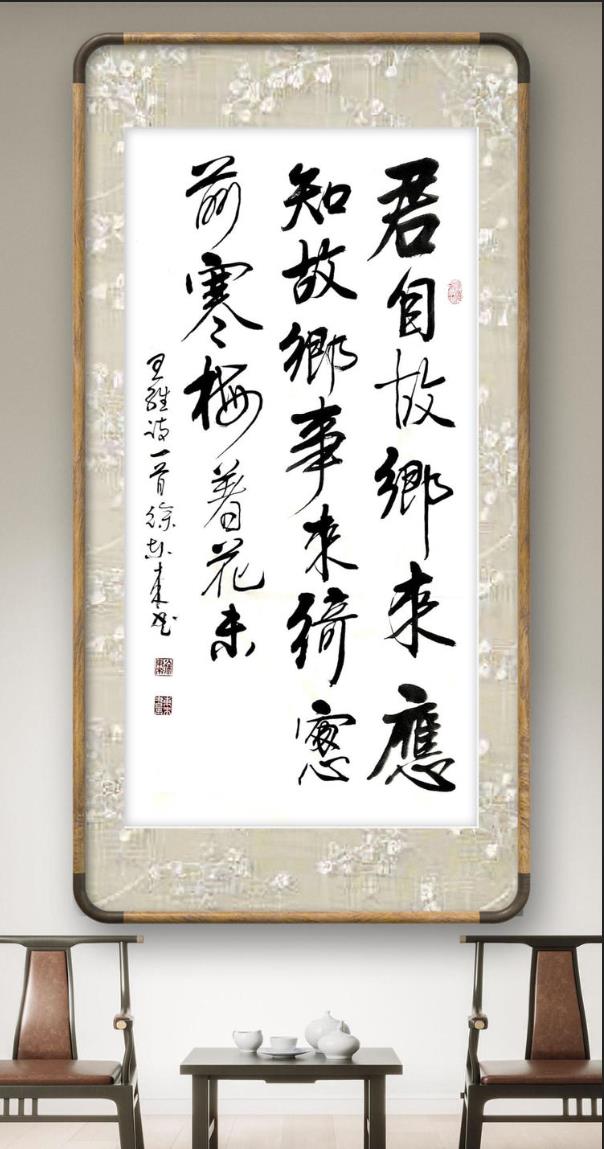 君自故鄉來應
知故鄉事來綺窻
前寒梅著花未
王維詩一首徐